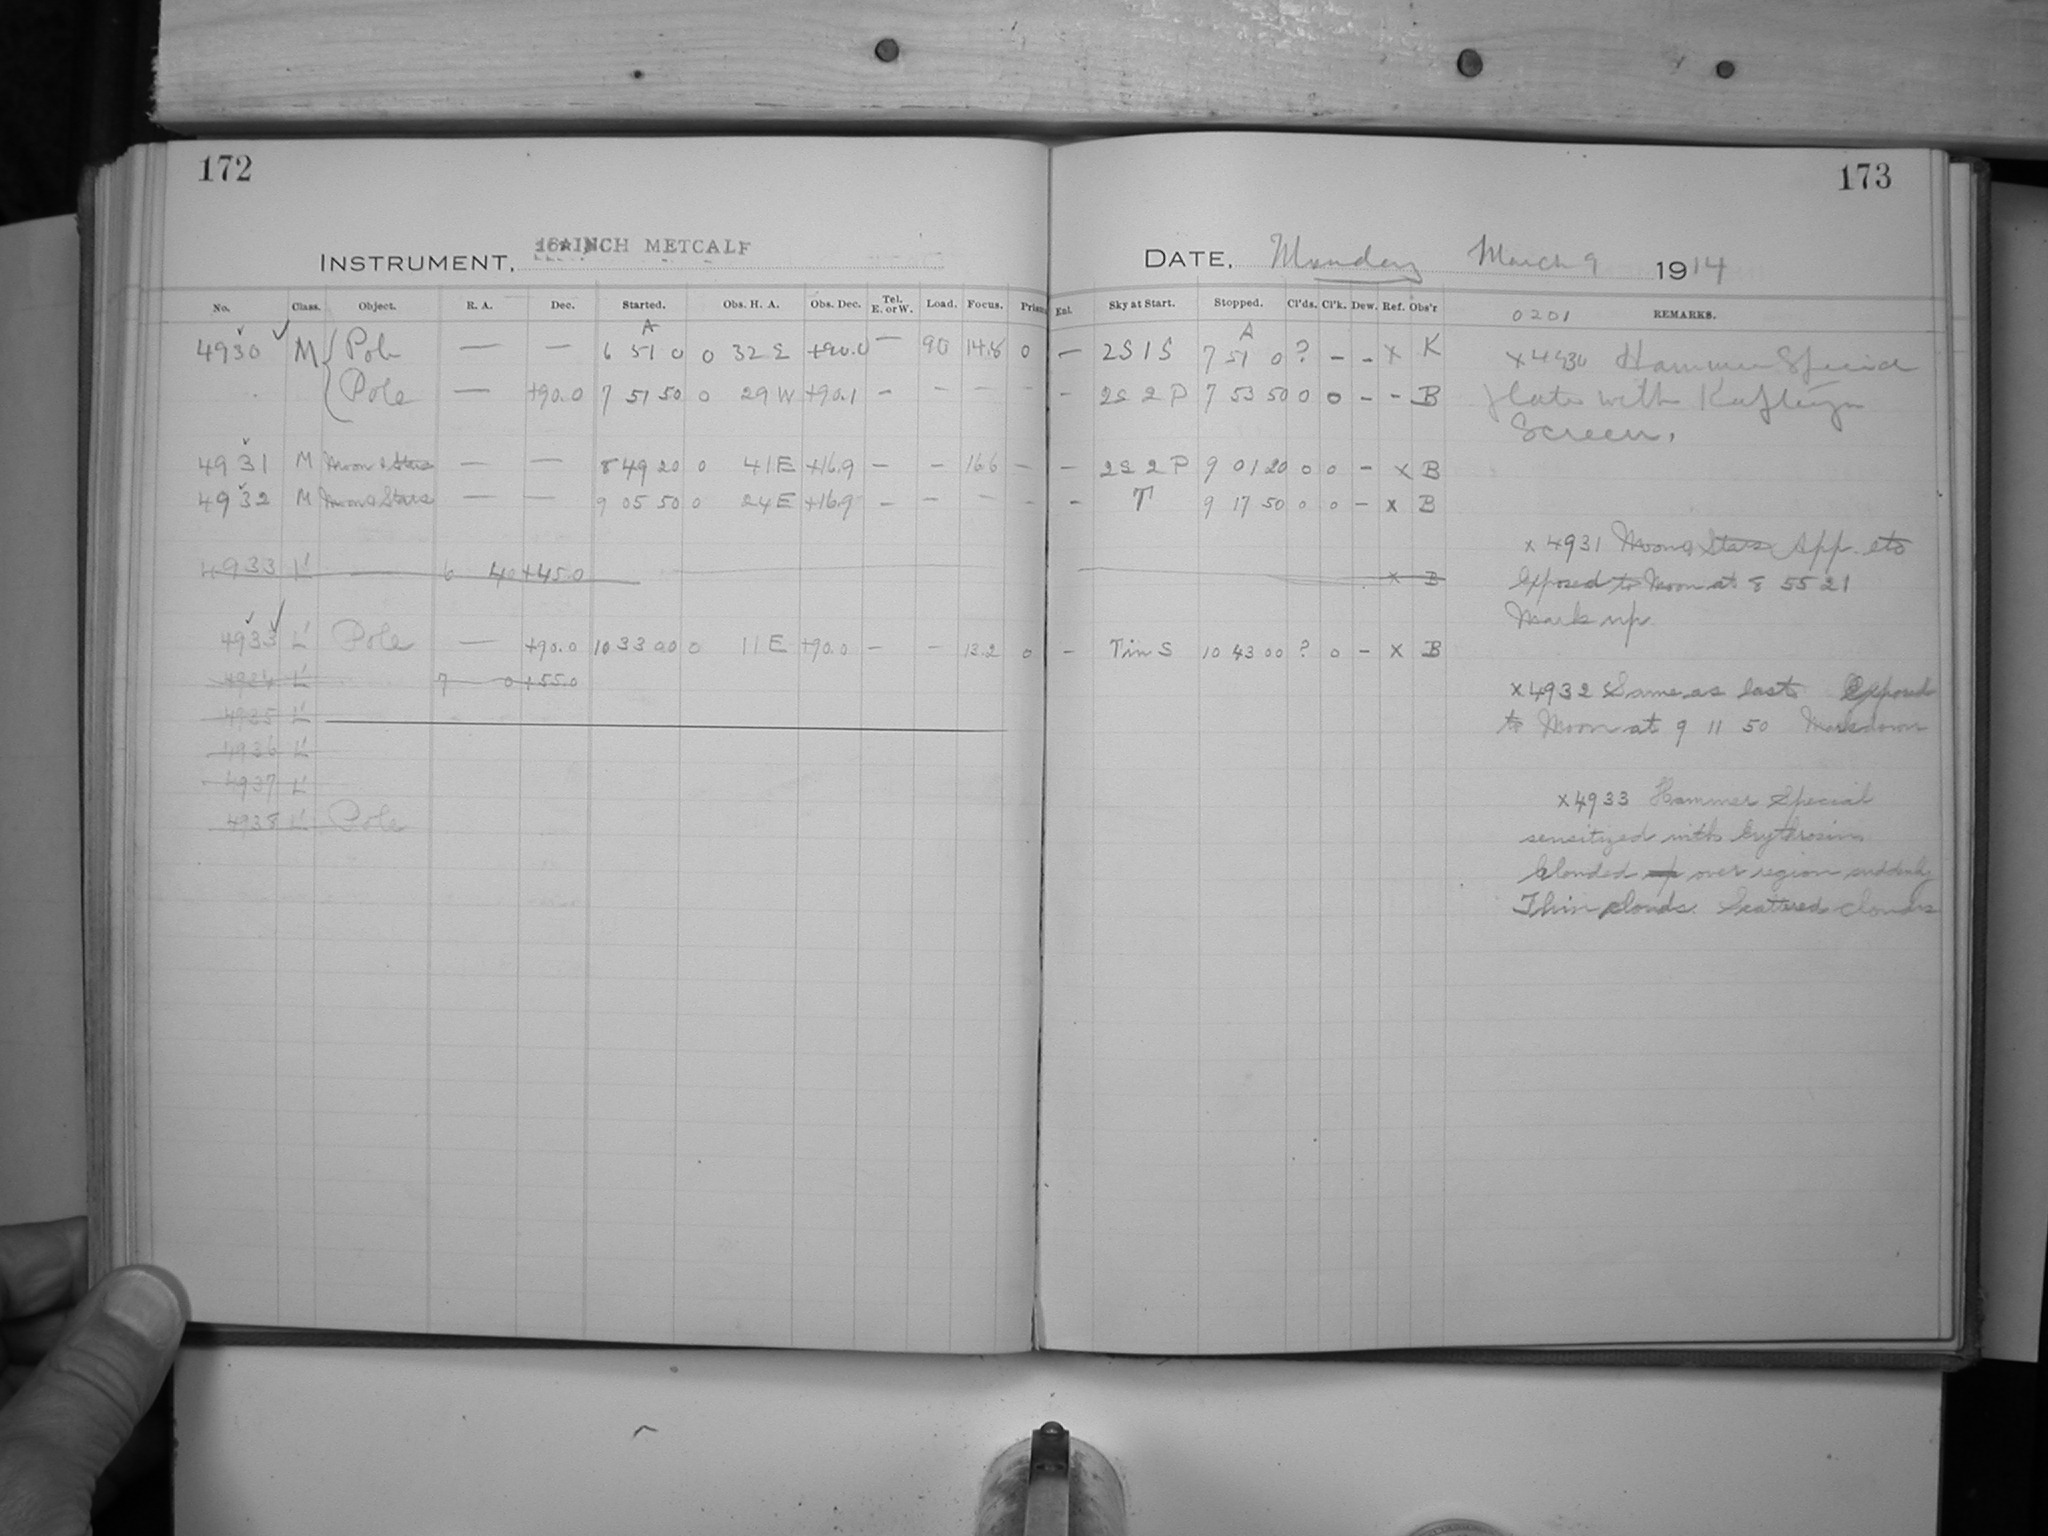 172
173
INSTRUMENT, 16-INCH METCALF
DATE, Monday March 9 1914
No. Class. Object. R. A. Dec. Started. Obs. H. A. Obs. Dec. Tel. E. or W. Load. Focus. Prism Enl. Sky at Start. Stopped. Cl'ds. Cl'k. Dew. Ref. Obs'r 0201 REMARKS.
A A
4930 M Pole — — 6 51 0 0 32 E +90.0 — 90 14.8 0 — 2S 1 S 7 51 0 ? — — x K
Pole — +90.0 7 51 50 0 29 W +90.1 — — — — — 2S 2 P 7 53 50 0 0 — — B
4931 M Moon & Stars — — 8 49 20 0 41 E +16.9 — — 16.6 — — 2S 2 P 9 01 20 0 0 — x B
4932 M Moon & Stars — — 9 05 50 0 24 E +16.9 — — — — — T 9 17 50 0 0 — x B
4933 L' — 6 40 +45.0 x B
4933 L' Pole — +90.0 10 33 00 0 11 E +90.0 — — 13.2 0 — T in S 10 43 00 ? 0 — x B
4934 L' 7 0 +55.0
4935 L'
4936 L'
4937 L'
4938 L' Pole
x 4930 Hammer Special
plate with
Screen.
x 4931 Moon & Stars App. etc
Exposed to Moon at 8 55 21
Mark up
x 4932 Same as last Exposed
to Moon at 9 11 50 Mark down
x 4933 Hammer Special
sensitized with Erythrosin
Clouded up over region suddenly
Thin clouds. Scattered clouds